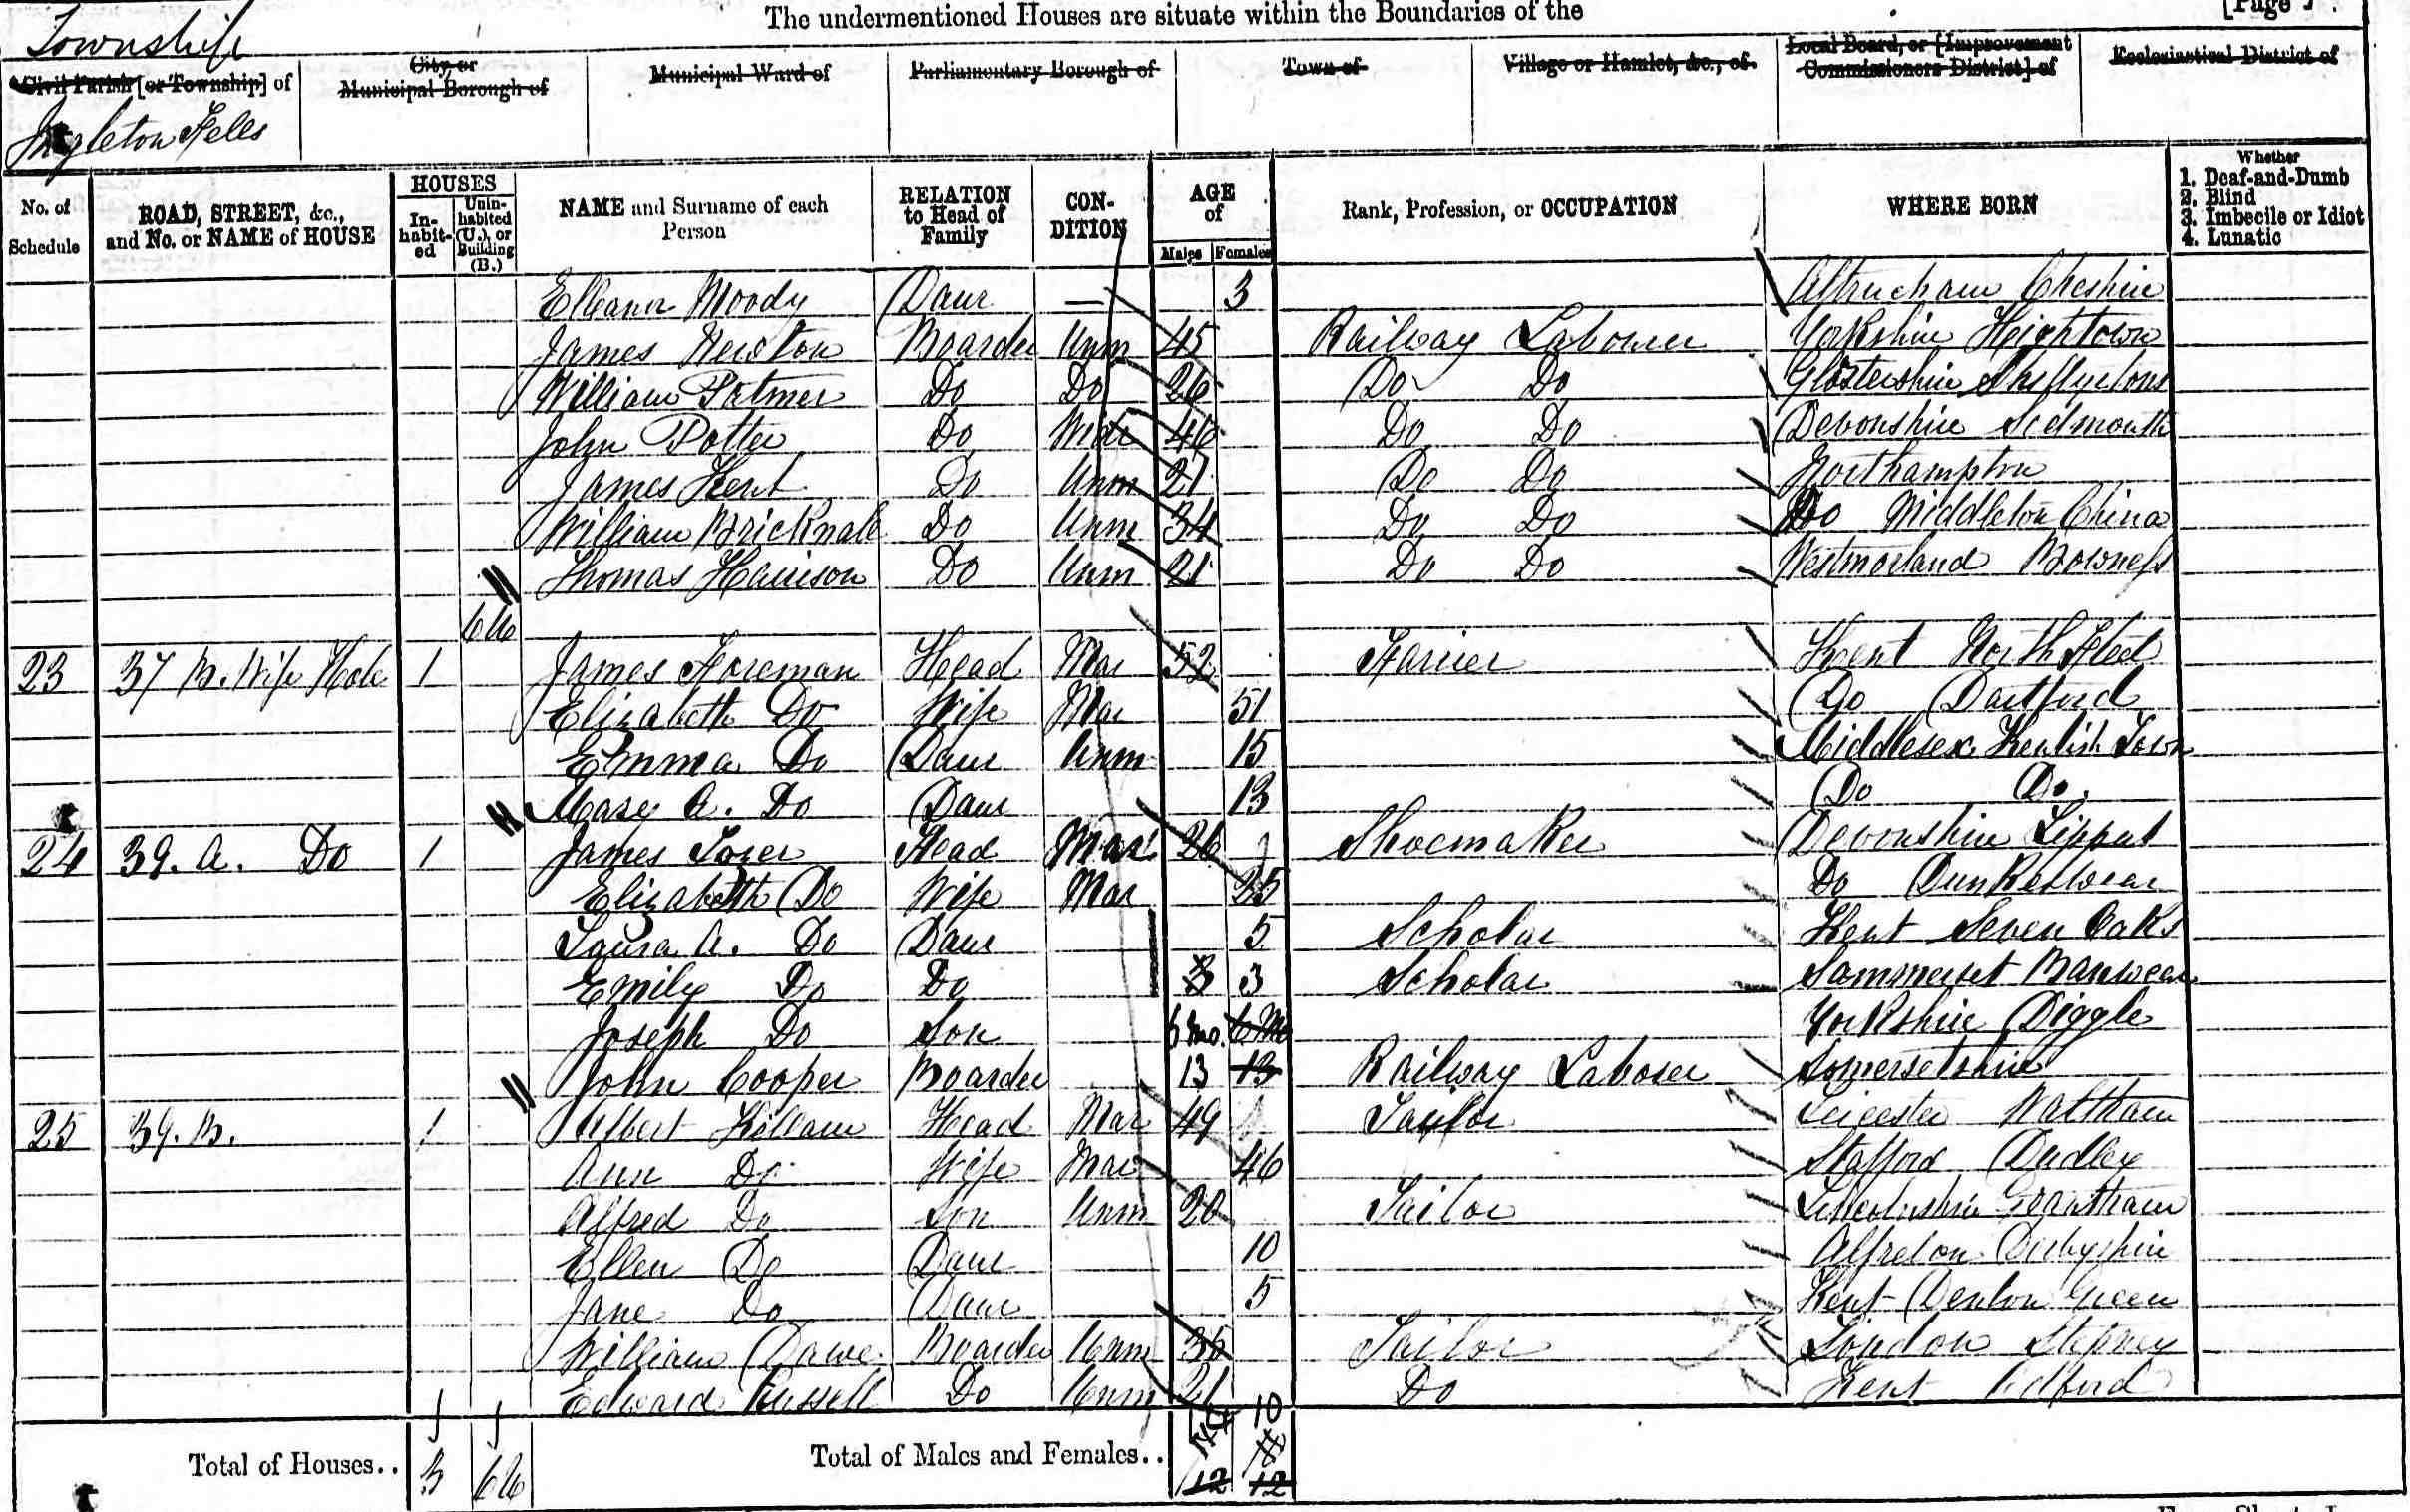 The undermentioned Houses are situate within the Boundaries of the [Page
Township
Civil Parish [or Township] of
City or Municipal Borough of
Municipal Ward of
Parliamentary Borough of
Town of
Village or Hamlet, &c., of
Local Board, or [Improvement Commissioners District] of
Ecclesiastical District of
Ingleton Fells
No. of Schedule
ROAD, STREET, &c., and No. or NAME of HOUSE
HOUSES
Inhabited
Uninhabited (U.), or Building (B.)
NAME and Surname of each Person
RELATION to Head of Family
CONDITION
AGE of
Males Females
Rank, Profession, or OCCUPATION
WHERE BORN
Whether
1. Deaf-and-Dumb
2. Blind
3. Imbecile or Idiot
4. Lunatic
Elleanor Moody Daur — 3 Cheshire
James Newton Boarder Unm 45 Railway Labourer Yorkshire Hightown
William Do Do 26 Do Do Glostershire
John Potter Do Mar 46 Do Do Devonshire Sidmouth
James Kent Do Unm 21 Do Do Northampton
William Bricknale Do Unm 34 Do Do Do Middleton China
Thomas Harrison Do Unm 21 Do Do Westmorland Bowness
6U
23 37 B. Wife Hole 1 James Foreman Head Mar 52 Farrier Kent North Fleet
Elizabeth Do Wife Mar 51 Do Dartford
Emma Do Daur Unm 15 Middlesex Kentish Town
Mary A. Do Daur 13 Do Do.
24 39. A. Do 1 James Tozer Head Mar 26 Shoemaker Devonshire
Elizabetth Do Wife Mar 25 Do
Laura A. Do Daur 5 Scholar Kent Seven Oaks
Emily Do Do 3 3 Scholar Sommerset
Joseph Do Son 6 mo. 6 Mo Yorkshire Diggle
John Cooper Boarder 13 13 Railway Laborer Somersetshire
25 39. B. 1 Albert Killam Head Mar 49 Taylor Leicester Waltham
Ann Do Wife Mar 46 Stafford Dudley
Alfred Do Son Unm 20 Tailor Lincolnshire Grantham
Ellen Do Daur 10 Alfreton Derbyshire
Jane Do Daur 5 Kent Denton Green
William Dawe Boarder Unm 35 Tailor London Stepney
Edward Russell Do Unm 21 Do Kent
10
Total of Houses.. 3 6U Total of Males and Females.. 12 12